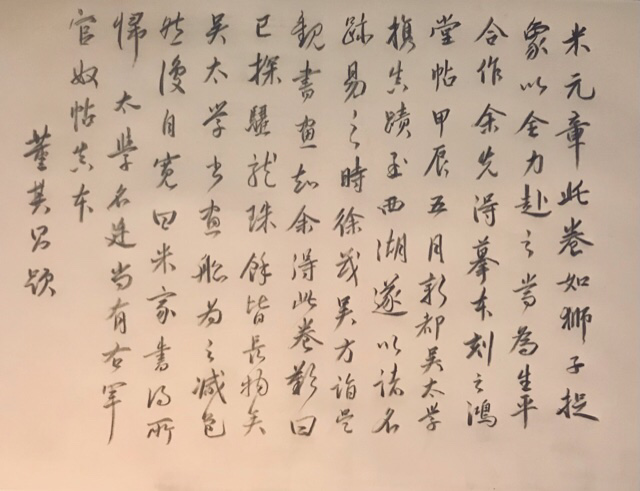 米元章此卷如獅子捉
象以全力赴之當為生平
合作余先得摹本刻之鴻
堂帖甲辰五月新都吳太學
携真蹟至西湖遂以諸名
跡易之時徐茂吳方詣吳
觀書畫知余得此卷歎曰
已探驪龍珠餘皆長物矣
吳太学書画船為之減色
然後自寬曰米家書得所
歸太學名廷尚有右軍
官奴帖真本
董其昌題